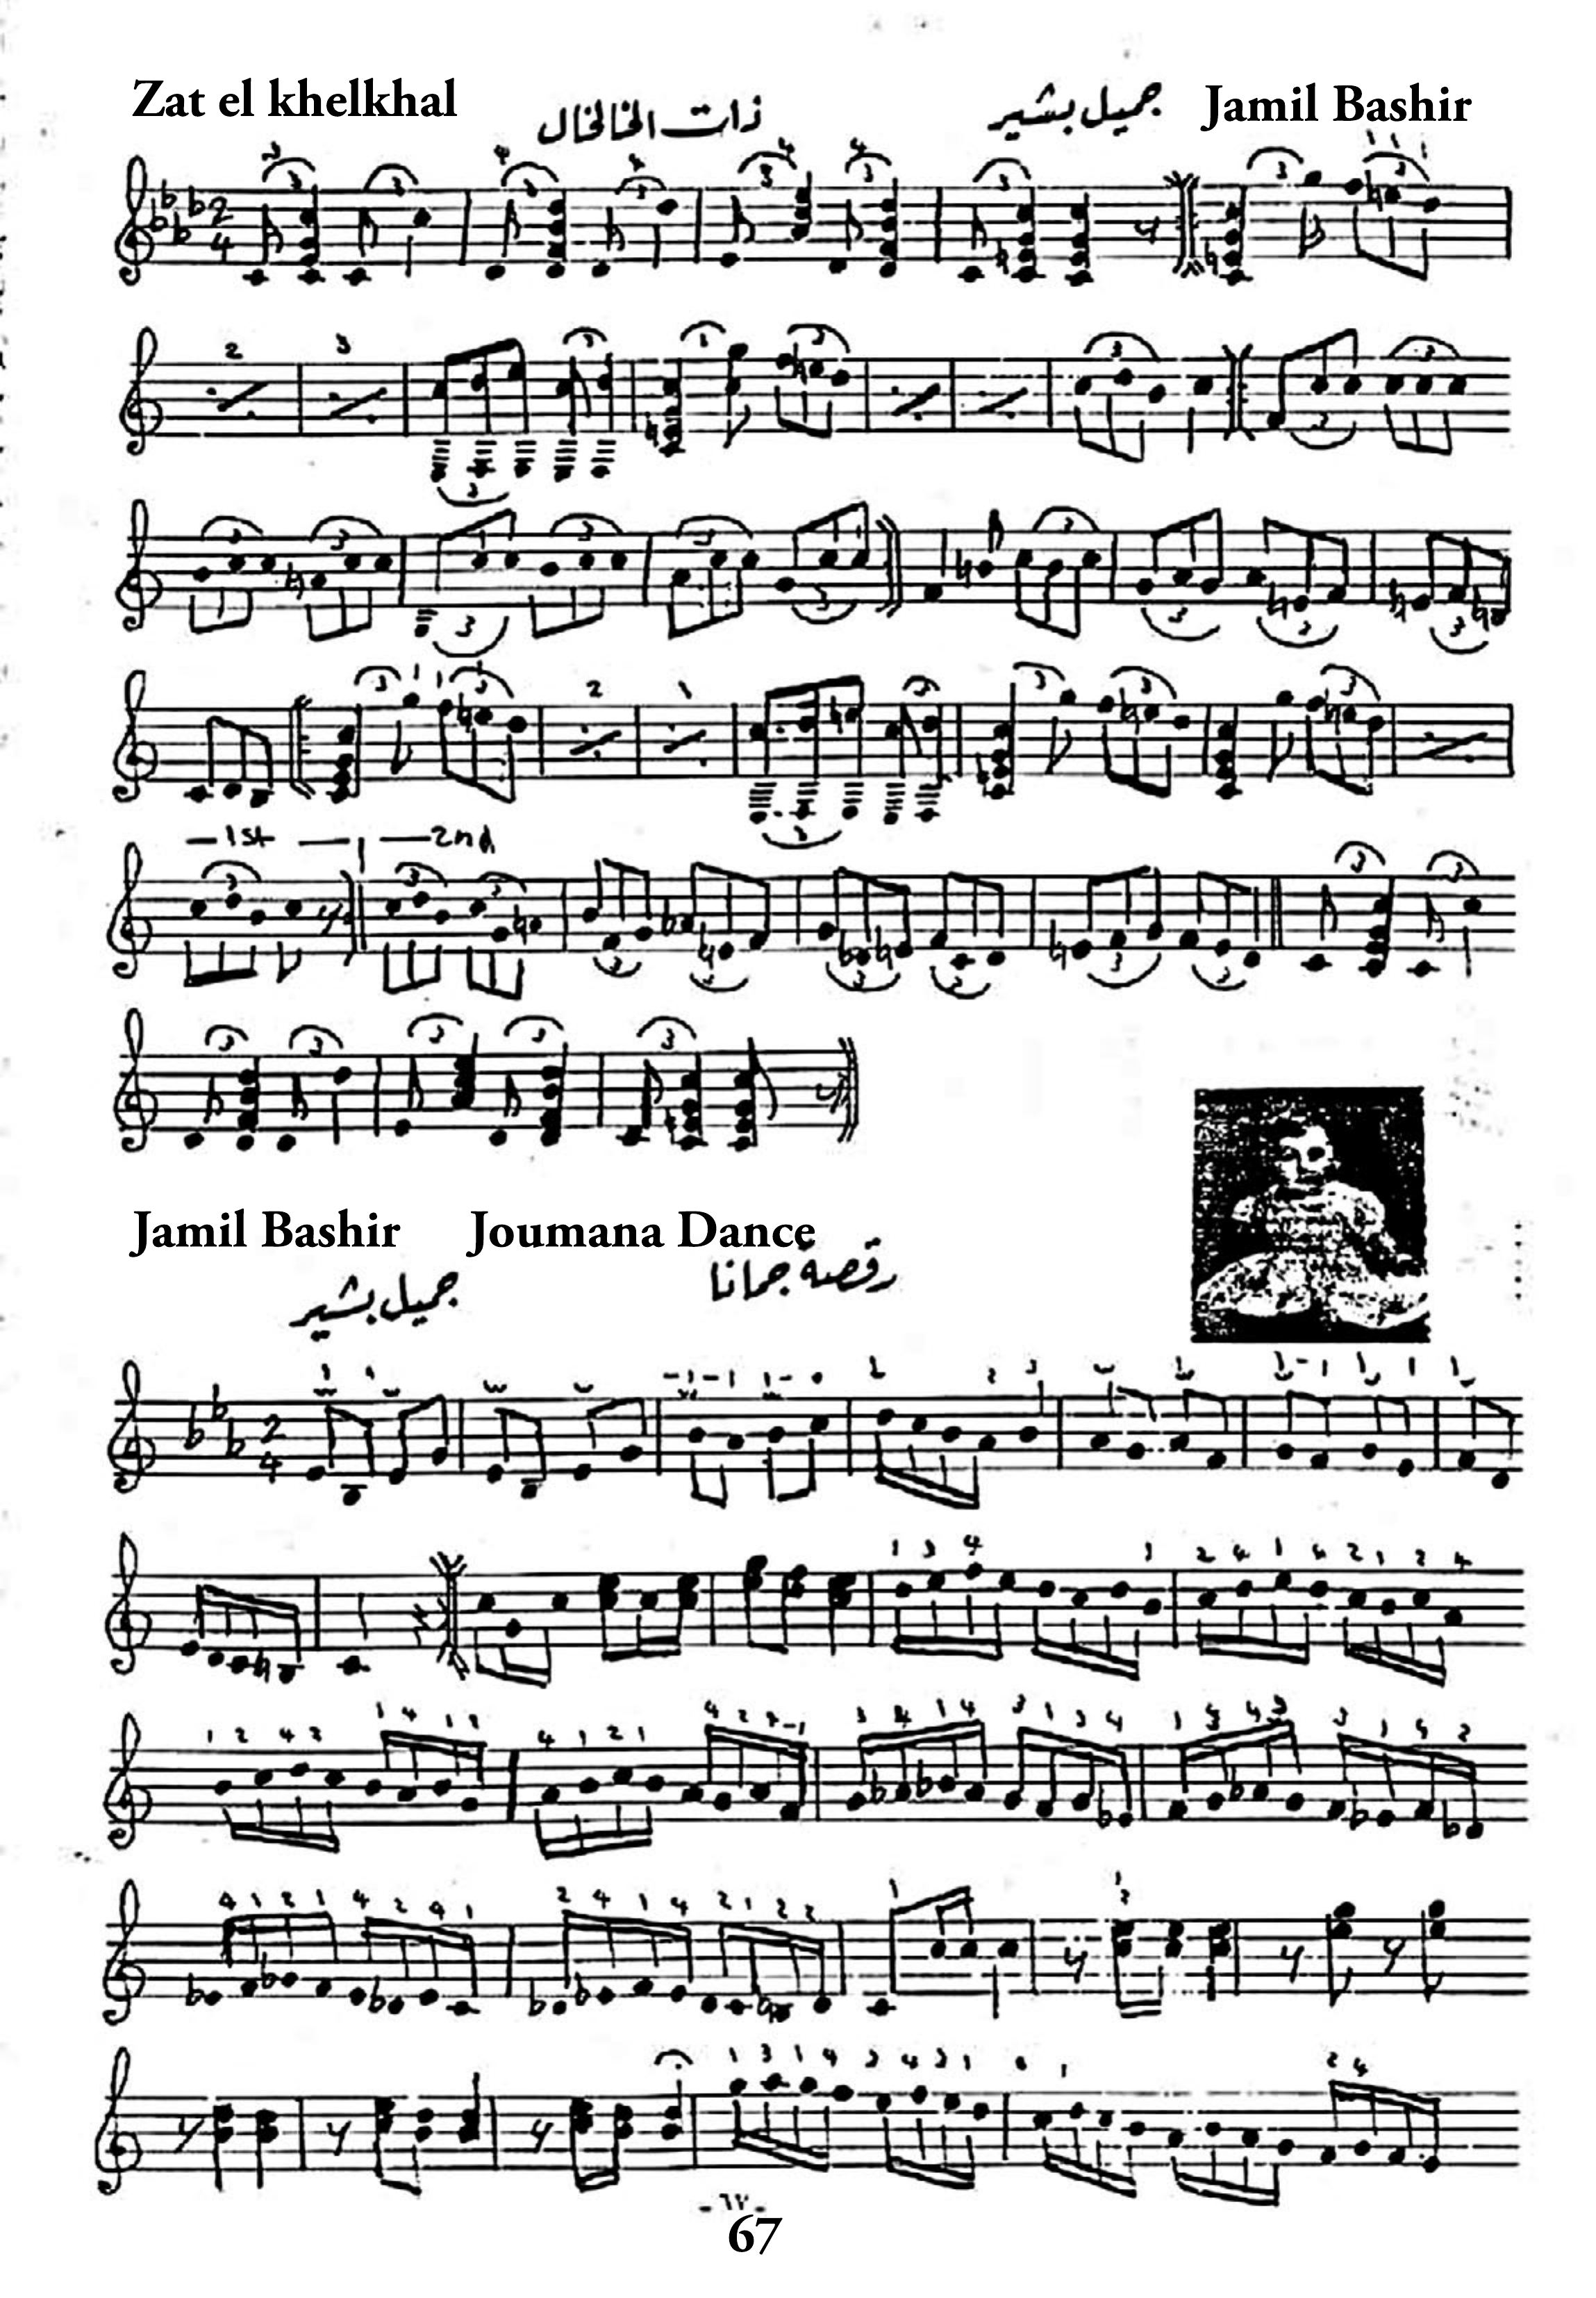 Zat el khelkhal ذات الخالخال جميل بشير Jamil Bashir
1st 2nd
Jamil Bashir Joumana Dance
جميل بشير رقصة جمانا
-٦٧-
67